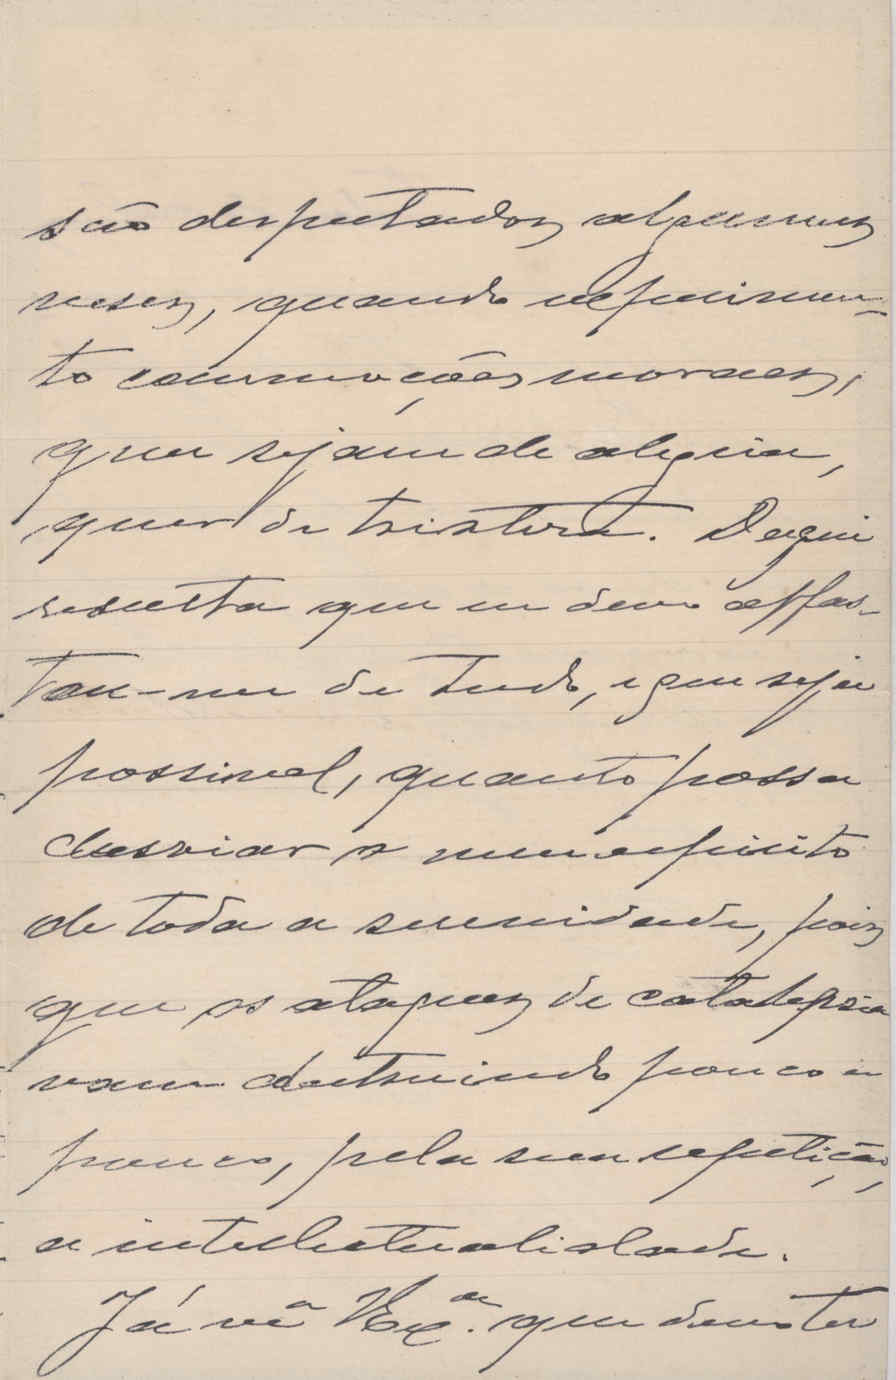 são despertados algumas
vezes, quando experimen-
to commoções moraes,
quer sejam de alegria,
quer de tristeza. Daqui
resulta que eu devo affas-
tar-me de tudo, e que seja
possivel, quanto possa
desviar o meu espirito
de toda a serenidade, pois
que os ataques de catalepsia
vam destruindo pouco a
pouco, pela sua repetição,
a intellectualidade.
Já vê V Ex.ª que devo ter